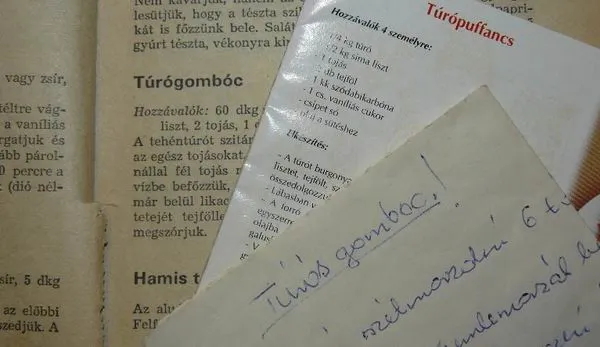 vagy zsír,
téltre vág-
a vaníliás
rgatjuk és
ább párol-
0 percre a
(dió nél-
sír, 5 dkg
az előbbi
szedjük. A
lesütjük, hogy a tészta
kát is főzzünk bele. Salát
gyúrt tészta, vékonyra
Túrógombóc
Hozzávalók: 60 dkg
liszt, 2 tojás, 1
A tehéntúrót szitán
az egész tojásokat
nállal fél tojás
vízbe befőzzük,
már belül likac
tetejét tejfölle
megszórjuk.
Hamis t
Az alu
Felf
Túrópuffancs
Hozzávalók 4 személyre:
1/4 kg túró
1/2 kg sima liszt
1 tojás
db tejföl
- 1 kk szódabikarbóna
- 1 cs. vaníliás cukor
- csipet só
a sütéshez
Elkészítés:
- A túrót burgony
lisztet, tejfölt, sz
összedolgozzu
- Lábasban
- A forró
egyszerre
olajba
galus
Túrós gombóc!
6